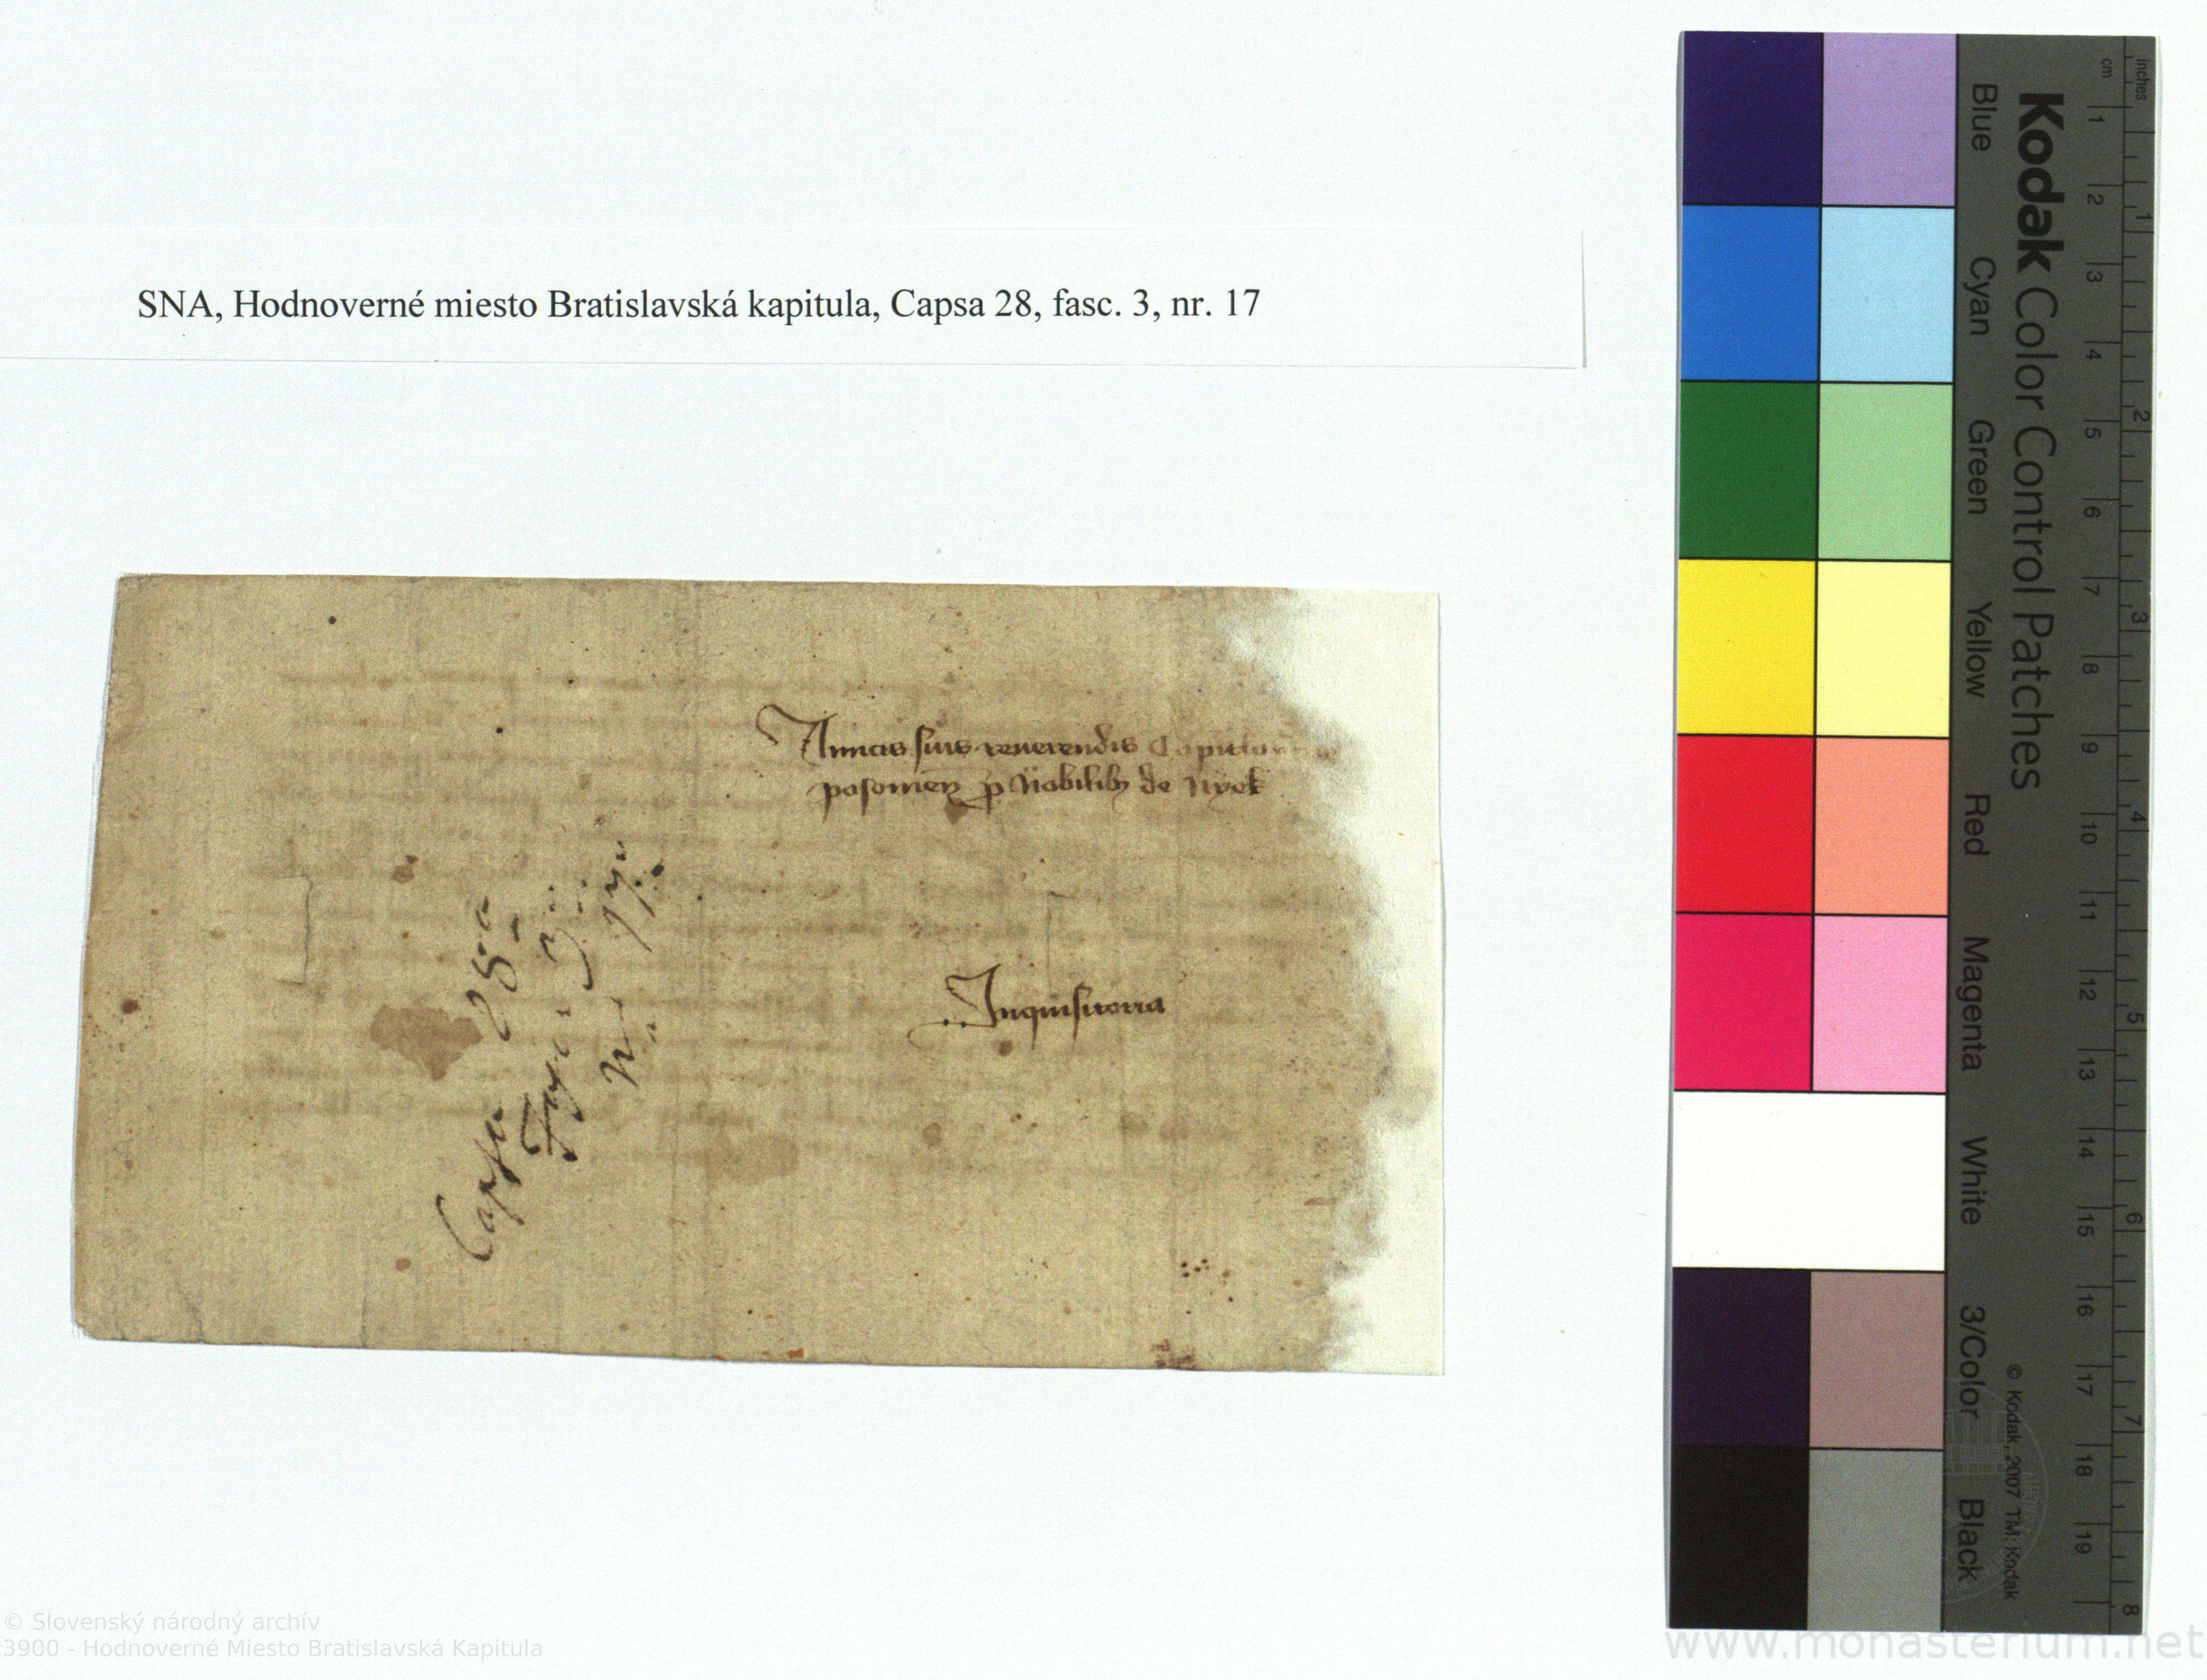 SNA, Hodnoverné miesto Bratislavská kapitula, Capsa 28, fasc. 3, nr. 17
Amicis suis reverendis Capitulo
posonien p Nobilib de Nyek
Inquisitoria
Capsa 28a
Fasc. 3.
N. 17.
Kodak Color Control Patches
Blue Cyan Green Yellow Red Magenta White 3/Color Black
© Kodak, 2007 TM: Kodak
inches 1 2 3 4 5 6 7 8
cm 1 2 3 4 5 6 7 8 9 10 11 12 13 14 15 16 17 18 19
© Slovenský národný archív
3900 - Hodnoverné Miesto Bratislavská Kapitula
www.monasterium.net